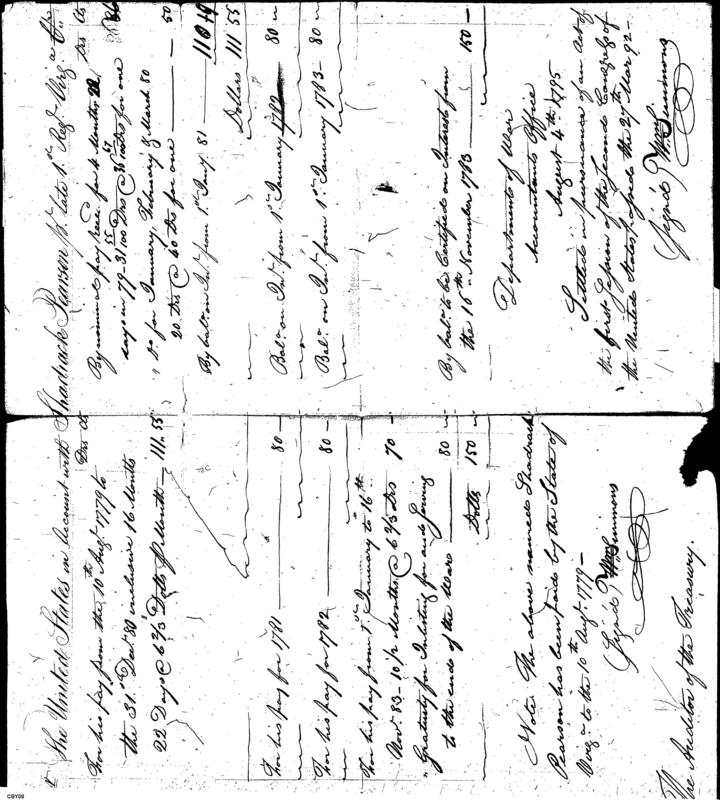 The United States in Account with Shadrach Pearson pr. late 1st Regt Virga
Drs Cts
For his pay from the 10th Augt 1779 to
the 31st Decr 80 inclusive 16 Months
22 Days @ 6 2/3 Dolls pr Month — 111.55
For his pay for 1781 — 80 —
For his pay for 1782 — 80 —
For his pay from 1st January to 16th
Novr 83 - 10 1/2 Months @ 6 2/3 Drs 70 —
Gratuity for Inlisting for and serving
to the end of the War — 80 —
Dolls 150
Note. The above named Shadrach
Pearson has been paid by the State of
Virga to the 10th Augt. 1779 —
Signd, Wm Simmons
The Auditor of the Treasury.
Drs Cts
By nominal pay recd. for 4 Months 22
days in 79 - 31 55/100 Drs @ for one
Do for January, February & March 80
20 Drs @ 60 Drs for one — 50
By bal. on Int. from 1st Jany. 81 —
Dollars 111 55
Bal. on Int. from 1st January 1782 80
Bal. on Int. from 1st January 1783 — 80
By bal. to be Certified on Interest from
the 16th November 1783 — 150 —
Department of War
Accountants Office
August 4th 1795
Settled in pursuance of an Act of
the first Session of the second Congress of
the United States passed the 27th Mar 92 —
Signd, Wm Simmons
CBY08